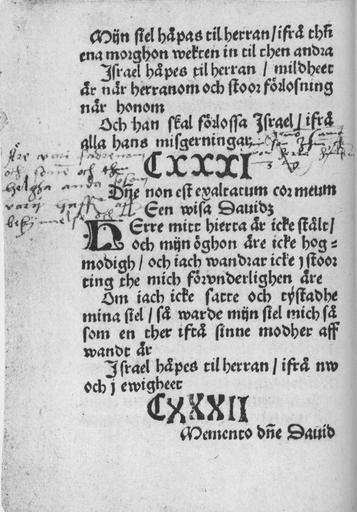 Mijn siel håpas til herran / ifrå thn̄
ena morghon wekten in til then andra
Jsrael håpes til herran / mildheet
är när herranom och stoor förlosning
när honom
Och han skal förlossa Jsrael / ifrå
alla hans misgerningar
Äre vari fadrenom
och sone och
helgha anda
CXXXI
Dn̄e non est exaltatum cor meum
Een wisa Dauidz
HErre mitt hierta är icke stålt /
och mijn öghon äre icke hog-
modigh / och iach wandrar icke j stoor
ting the mich förvnderlighen äre
Om iach icke satte och tystadhe
mina siel / så warde mijn siel mich så
som en ther ifrå sinne modher aff
wandt är
Jsrael håpes til herran / ifrå nw
och j ewigheet
CXXXII
Memento dn̄e Dauid